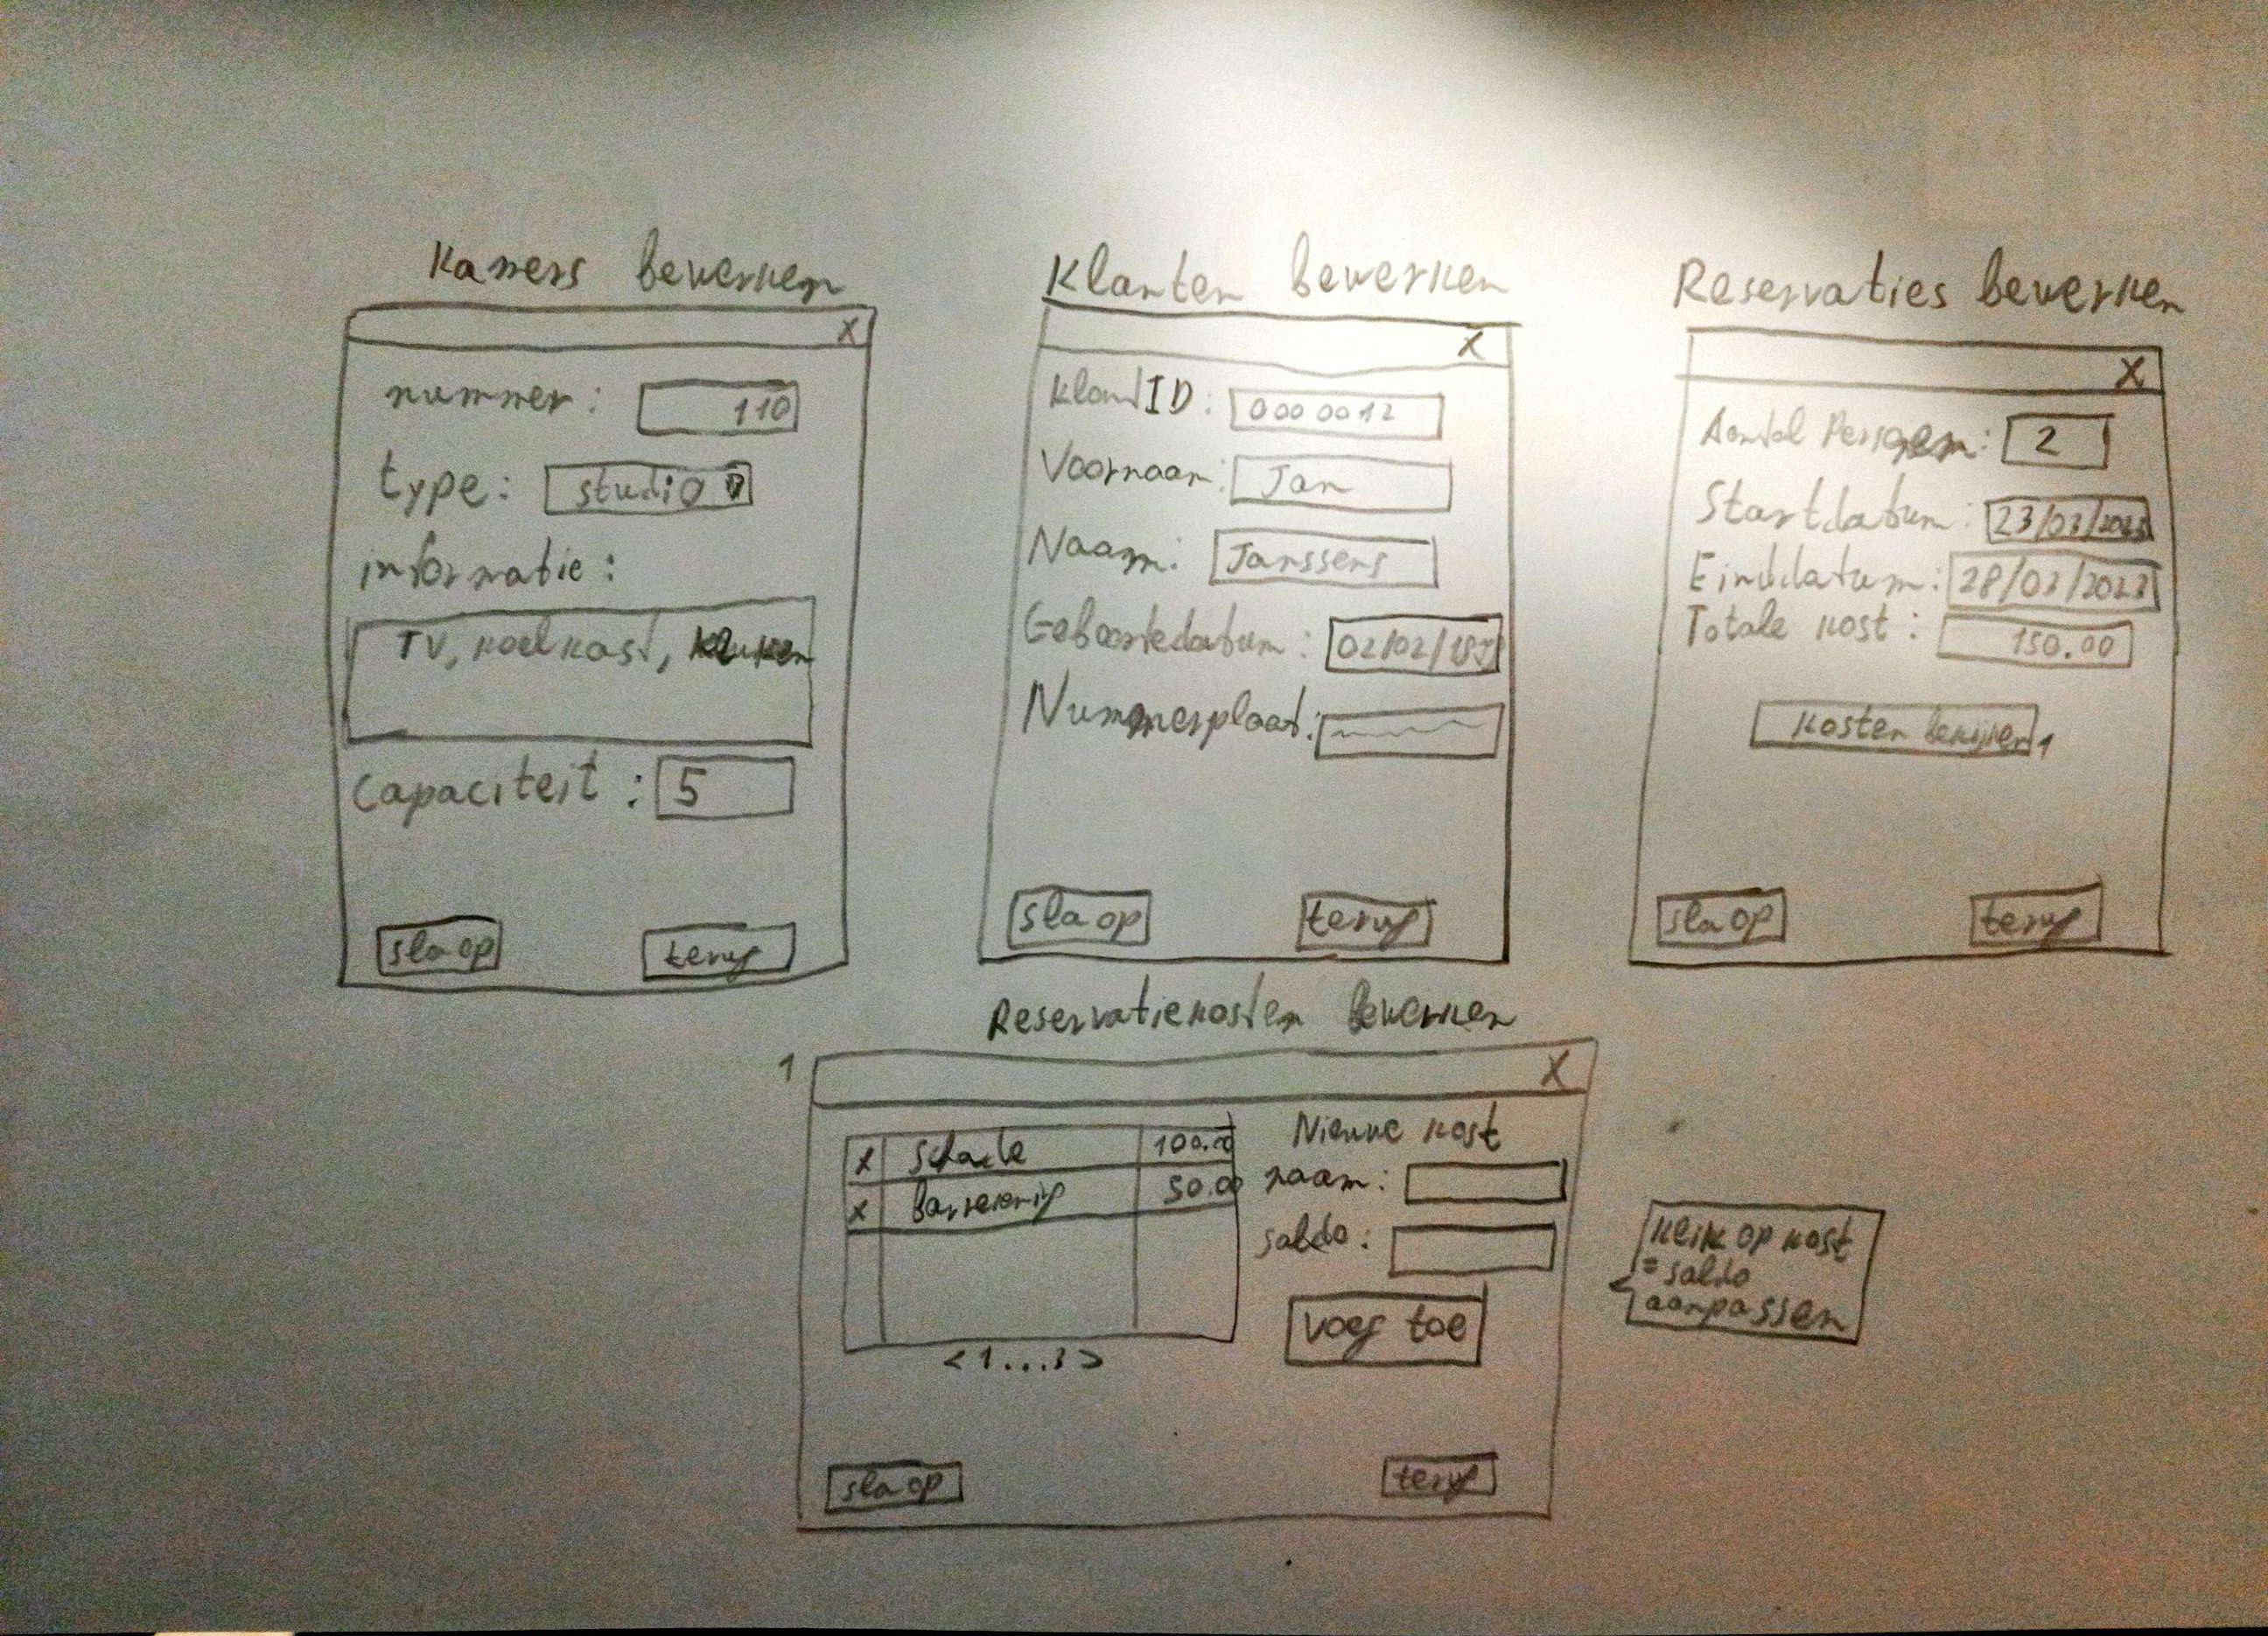 Kamers bewerken
X
nummer: 110
type: studio
informatie:
TV, koelkast, keuken
Capaciteit: 5
sla op
terug
Klanten bewerken
X
KlantID: 0000012
Voornaam: Jan
Naam: Janssens
Geboortedatum: 02/02/
Nummerplaat:
sla op
terug
Reservaties bewerken
X
Aantal Personen: 2
Startdatum: 23/03/2023
Einddatum: 28/03/2023
Totale kost: 150.00
Kosten bekijken 1
sla op
terug
Reservatiekosten bewerken
1
X
X schade 100.00
X 50.00
<1...3>
Nieuwe kost
naam:
saldo:
voeg toe
sla op
terug
Klik op kost
= saldo
aanpassen